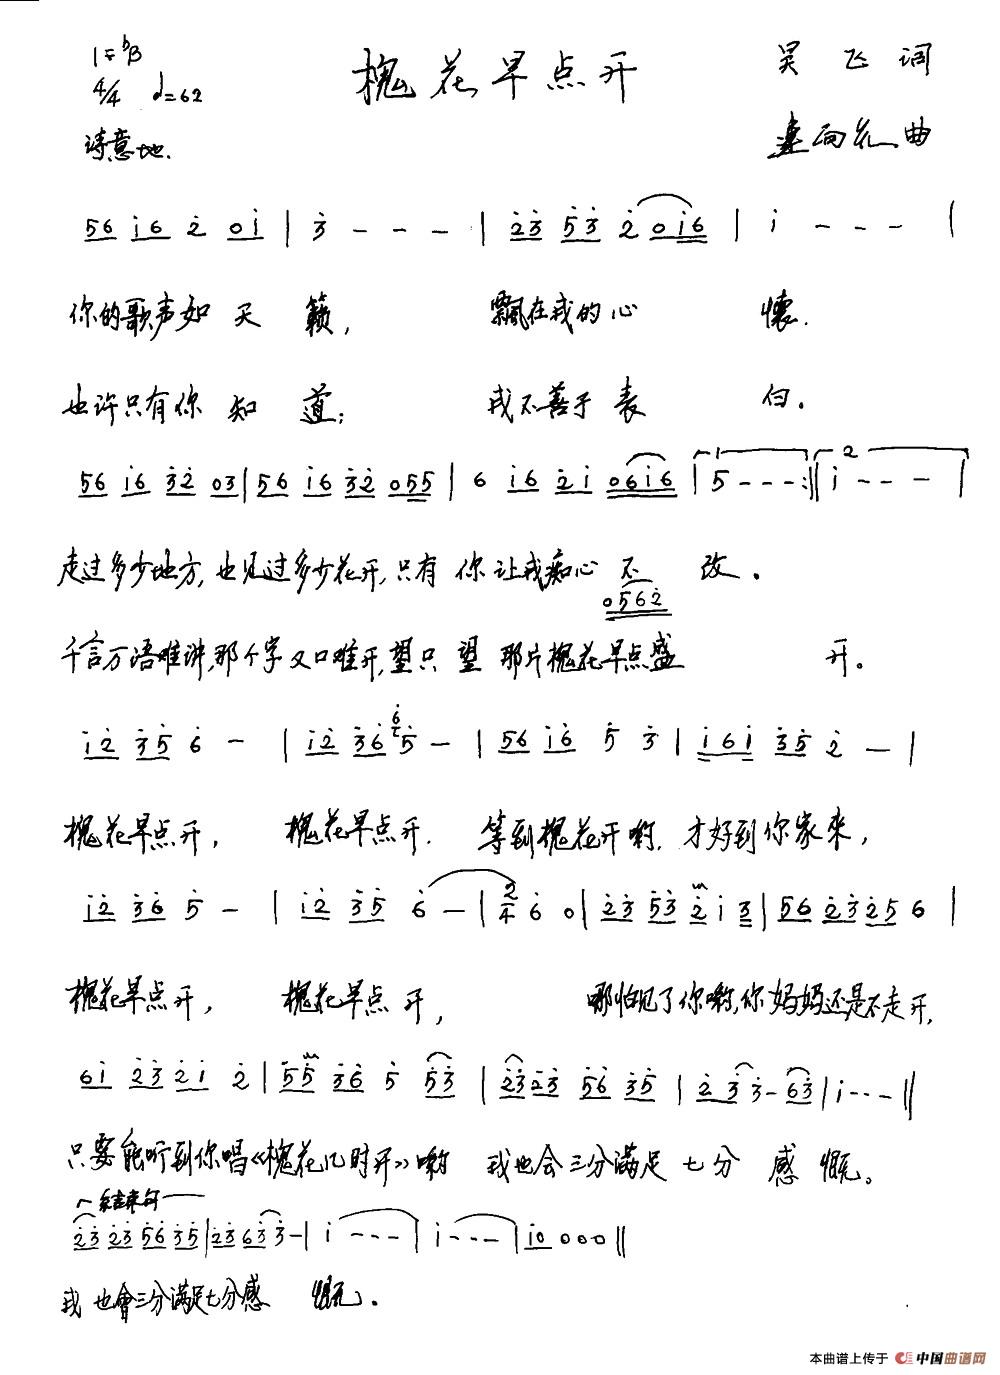 1=♭B 槐花早点开 吴飞词
4/4 ♩=62
诗意地. 曲
56 i6 2̇ 0i | 3̇ - - - | 2̇3̇ 5̇3̇ 2̇ 0i6 | i - - - |
你的歌声如天籁, 飘在我的心怀.
也许只有你知道; 我不善于表白。
56 i6 3̇2̇ 03 | 56 i6 3̇2̇ 055 | 6 i6 2̇i 06i6 | 1 5 - - - :‖ 2 i - - - |
走过多少地方,也见过多少花开,只有你让我痴心不改。
0562̇
千言万语难讲,那个字又口难开,望只望那片槐花早点盛开。
i2̇ 3̇5̇ 6̇ - | i2̇ 3̇6̇ 6̇5̇ - | 56 i6 5̇ 3̇ | i6i 3̇5̇ 2̇ - |
槐花早点开, 槐花早点开. 等到槐花开哟. 才好到你家来,
i2̇ 3̇6̇ 5̇ - | i2̇ 3̇5̇ 6̇ - | 2/4 6̇ 0 | 2̇3̇ 5̇3̇ 2̇ i 3̇ | 56 2̇3̇ 2̇5 6 |
槐花早点开, 槐花早点开, 哪怕见了你哟,你妈妈还是不走开,
6i 2̇3̇ 2̇i 2̇ | 5̇5̇ 3̇6̇ 5̇ 5̇3̇ | 2̇3̇2̇3̇ 5̇6̇ 3̇5̇ | 2̇ 3̇ 3̇ - 63̇ | i - - - ‖
只要能听到你唱《槐花几时开》哟 我也会三分满足七分感慨。
结束句
2̇3̇ 2̇3̇ 5̇6̇ 3̇5̇ | 2̇3̇ 6 3̇ 3̇ - | i - - - | i - - - | i0 0 0 0 ‖
我也會三分满足七分感慨.
本曲谱上传于 中国曲谱网